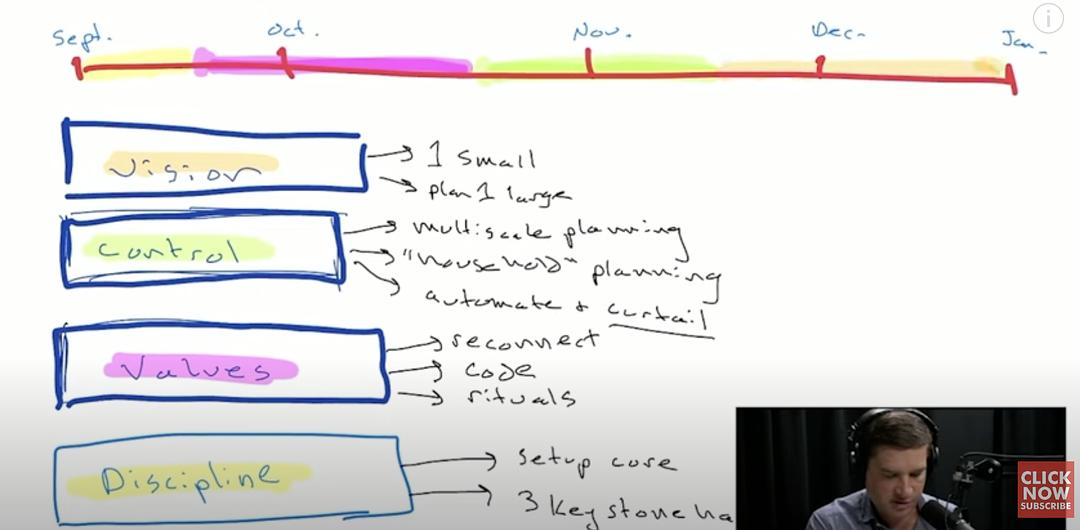 Sept.
Oct.
Nov.
Dec.
Jan.
Vision
1 small
plan 1 large
Control
multiscale planning
"household" planning
automate + curtail
Values
reconnect
code
rituals
Discipline
setup core
3 keystone ha
CLICK
NOW
SUBSCRIBE
i